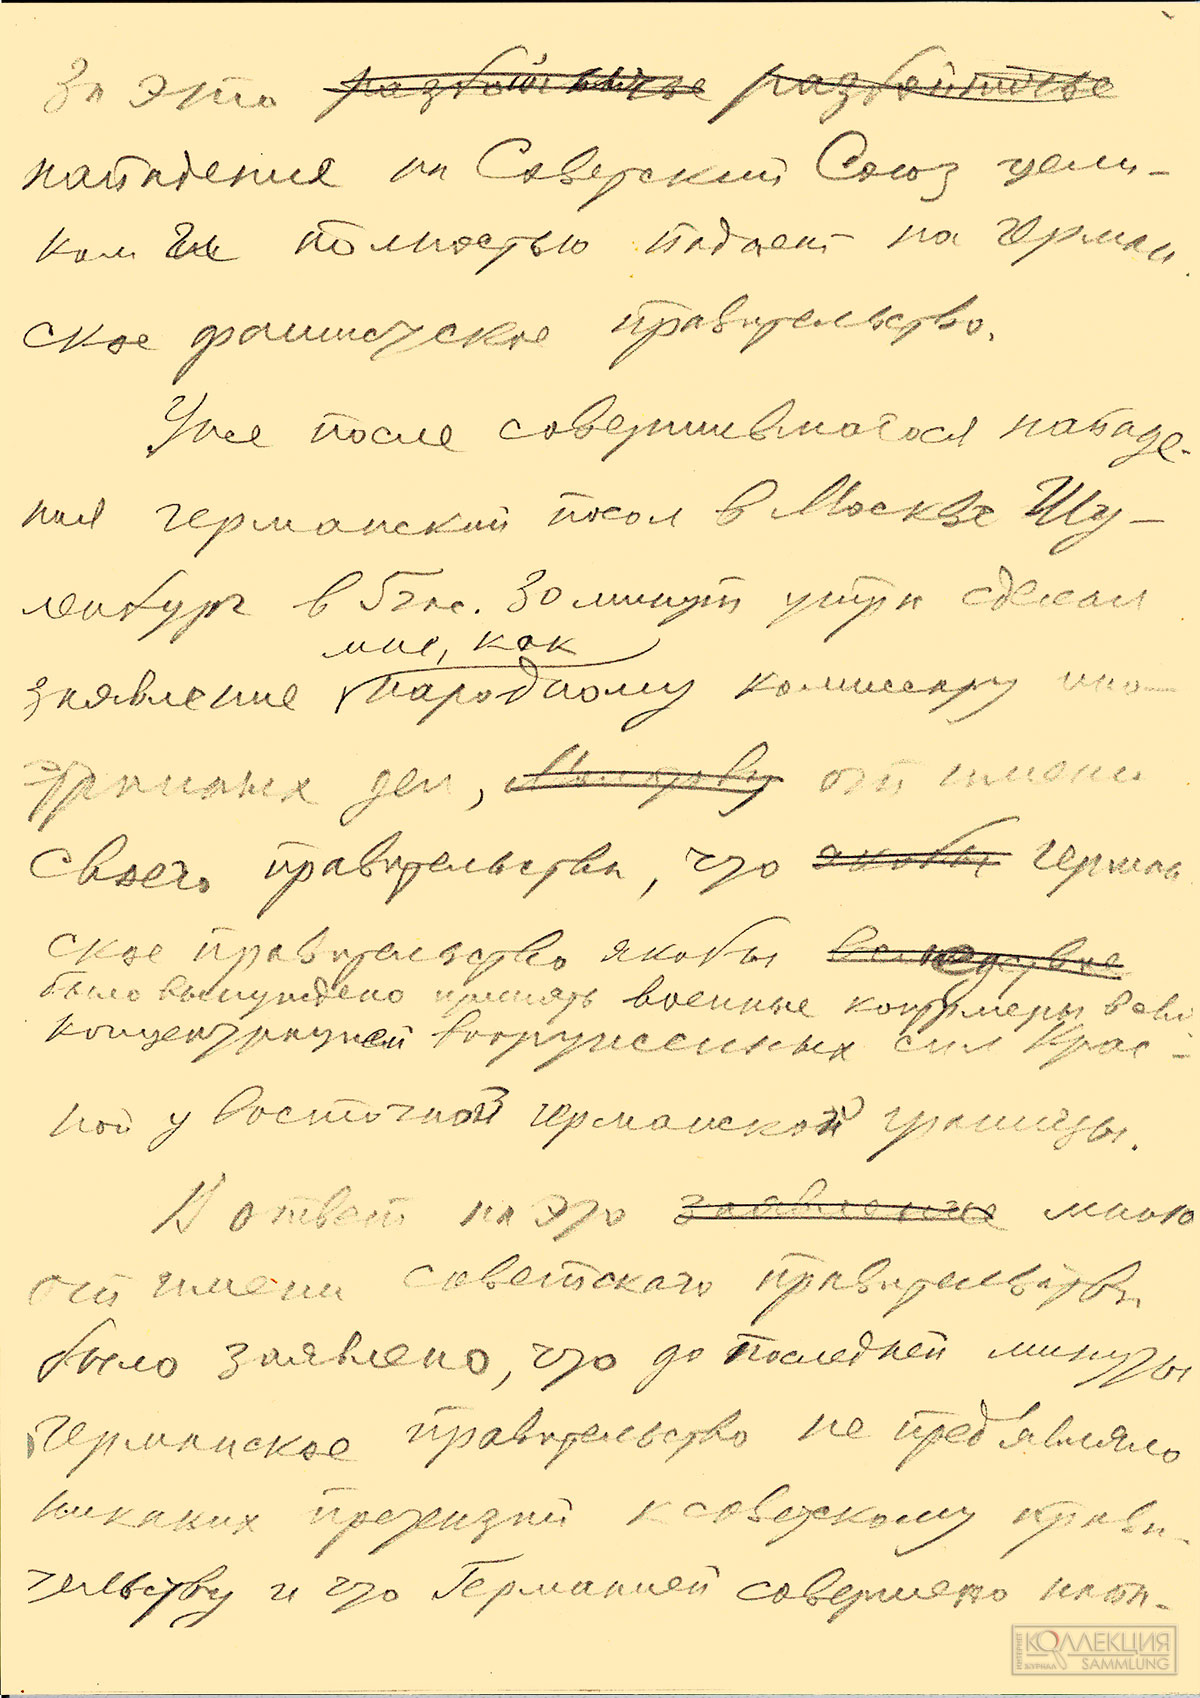 За это ~~разбойничье~~ ~~разбойничье~~
нападения на Советский Союз цели-
ком и полностью падает на герман
ское фашистское правительство.
Уже после совершившегося нападе-
ния германский посол в Москве Шу-
ленбург в 5 час. 30 минут утра сделал
мне, как
заявление народному комиссару ино-
странных дел, ~~Молотову~~ от имени
своего правительства, что ~~якобы~~ герман
ское правительство якобы ~~вследствие~~
было вынуждено принять военные контрмеры в связи
концентрацией вооруженных сил Крас-
ной у восточной германской границы.
В ответ на это ~~заявление~~ мною
от имени советского правительства
было заявлено, что до последней минуты
германское правительство не предъявляло
никаких претензий к советскому прави-
тельству и что Германией совершено напа-
ИНТЕРНЕТ ЖУРНАЛ КОЛЛЕКЦИЯ SAMMLUNG